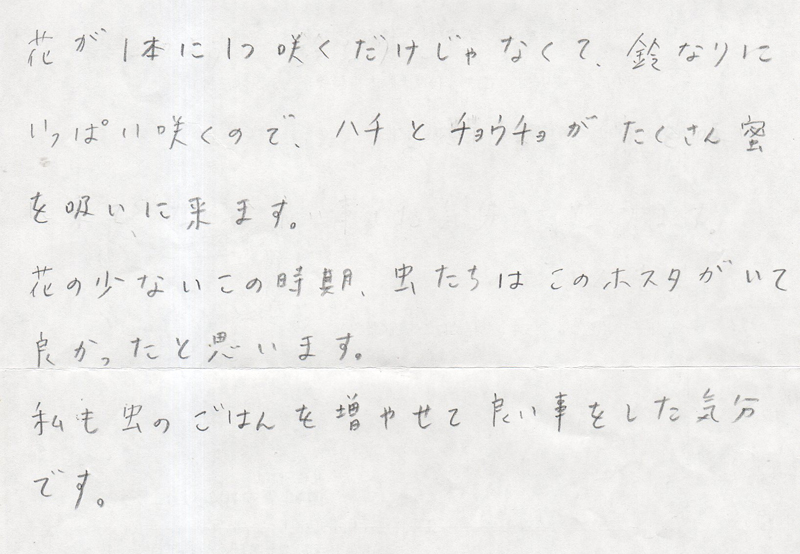 花が1本に1つ咲くだけじゃなくて、鈴なりに
いっぱい咲くので、ハチとチョウチョがたくさん蜜
を吸いに来ます。
花の少ないこの時期、虫たちはこのホスタがいて
良かったと思います。
私も虫のごはんを増やせて良い事をした気分
です。